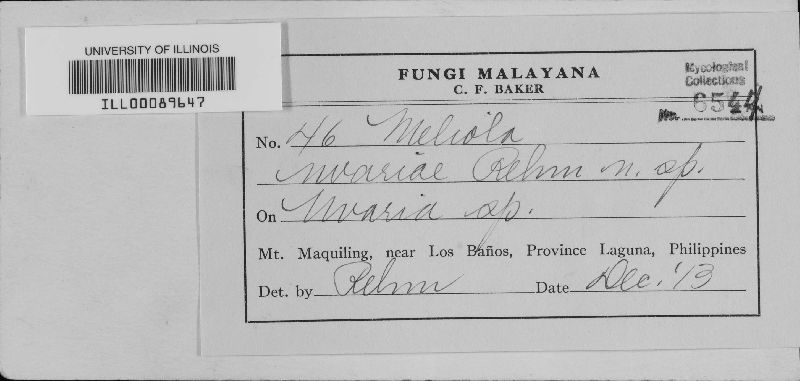 UNIVERSITY OF ILLINOIS
ILL00089647
FUNGI MALAYANA
C. F. BAKER
Mycological
Collections
No. 6544
No. 46 Meliola
uvariae Rehm n. sp.
On Uvaria sp.
Mt. Maquiling, near Los Baños, Province Laguna, Philippines
Det. by Rehm Date Dec. '13